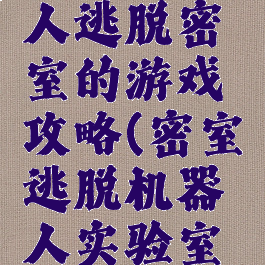 人逃脱密
室的游戏
攻略(密室
逃脱机器
人实验室